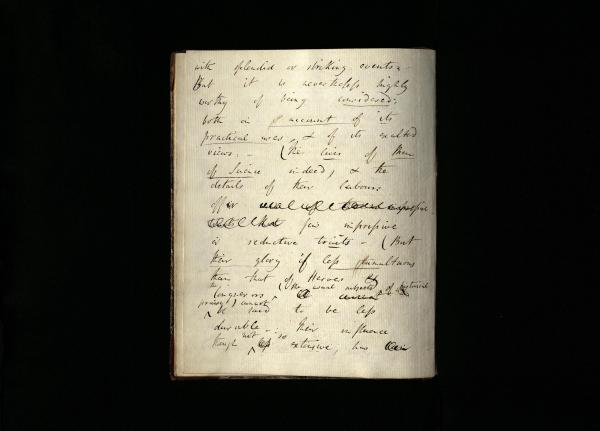 with splendid or striking events.-
But it is nevertheless highly
worthy of being considered;
both on account of its
practical uses, & of its exalted
views. - (The lives of Men
of Science indeed, & the
details of their labours
offer
but few impressive
or seductive traits - (But
their glory if less tumultuous
than that of Heroes &
(the usual subjects of historical
Conquerors
praise) cannot
be said to be less
durable -. Their influence
though not so extensive, has